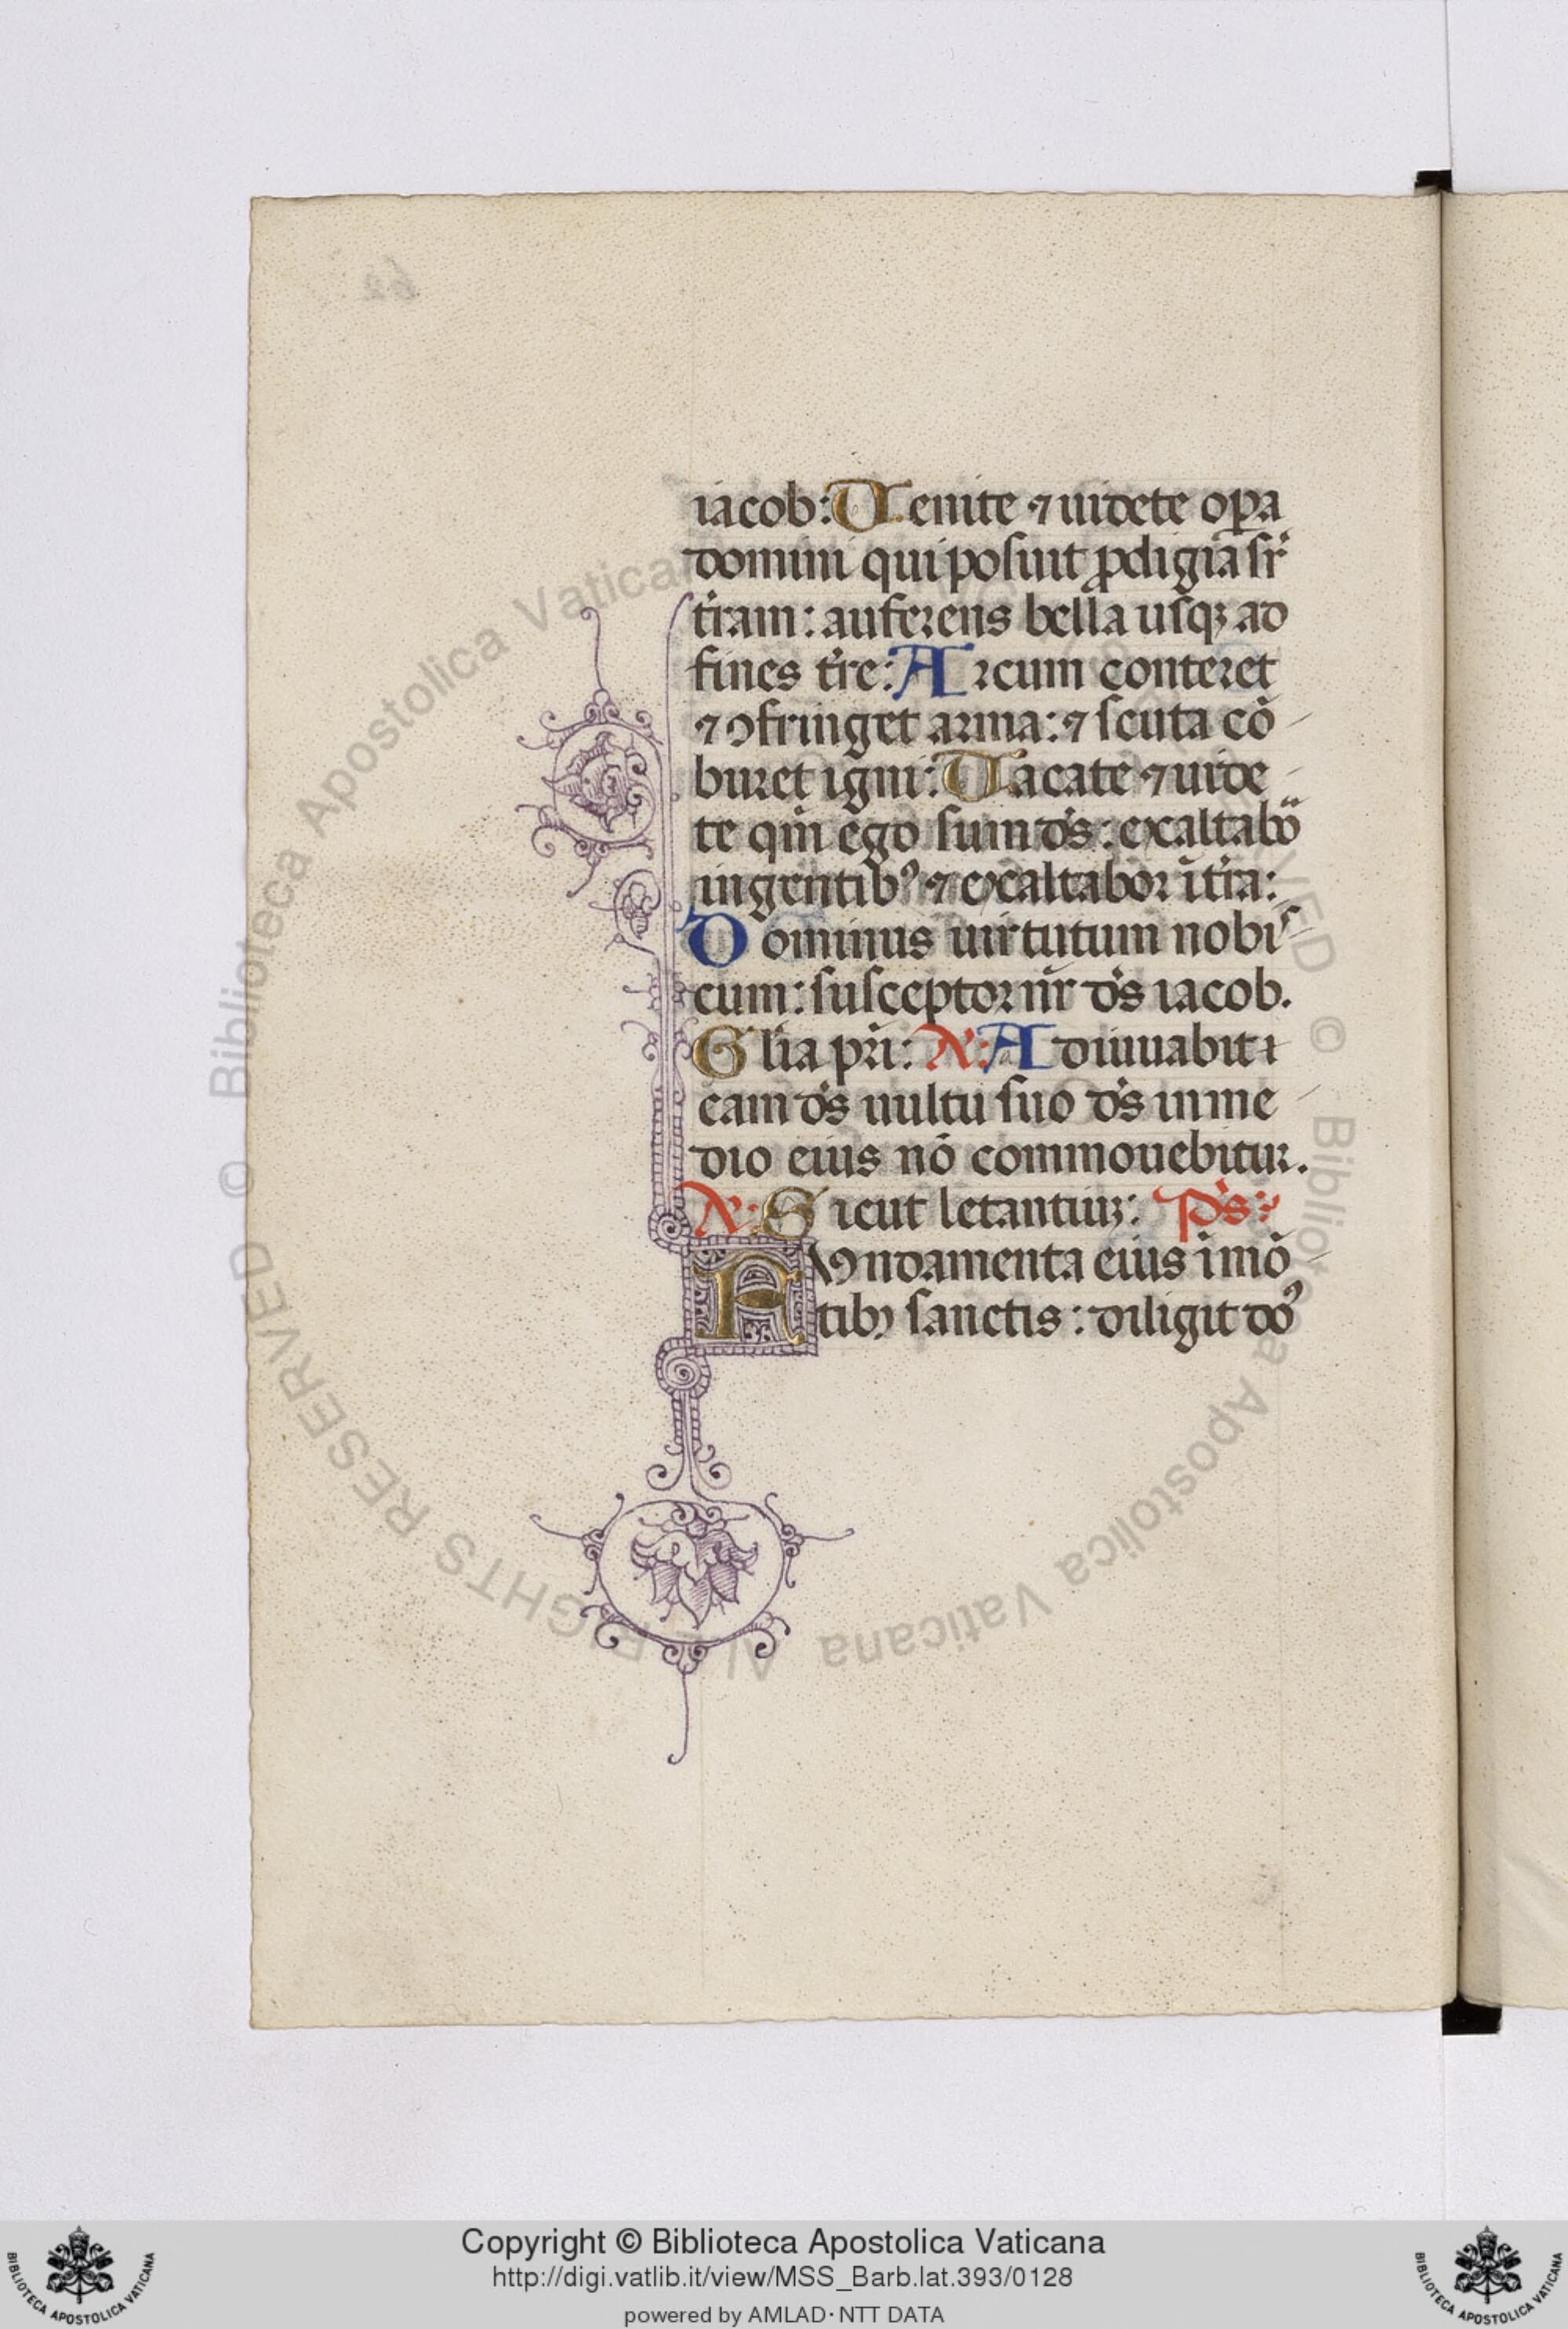 iacob: Uenite ⁊ uidete oꝑa
domini qui posuit ꝓdigia sr̄
t̄ram: auferens bella usqꝫ ad
fines t̄re: Arcum conteret
⁊ ꝯfringet arma: ⁊ scuta cō
buret igni: Uacate ⁊ uide
te qm̄ ego sum ds̄: exaltabor
in gentibꝰ ⁊ exaltabor ī t̄ra:
Dominus uirtutum nobis
cum: susceptor nr̄ ds̄ iacob.
Glīa pr̄i: A: Adiuuabit
eam ds̄ uultu suo ds̄ in me
dio eius nō commouebitur.
A: Sicut letantiuꝫ: ps̄:
Fundamenta eius ī mō
tibꝫ sanctis: diligit dōꝰ
62
© Biblioteca Apostolica Vaticana ALL RIGHTS RESERVED
Copyright © Biblioteca Apostolica Vaticana
http://digi.vatlib.it/view/MSS_Barb.lat.393/0128
powered by AMLAD·NTT DATA
BIBLIOTECA APOSTOLICA VATICANA
BIBLIOTECA APOSTOLICA VATICANA